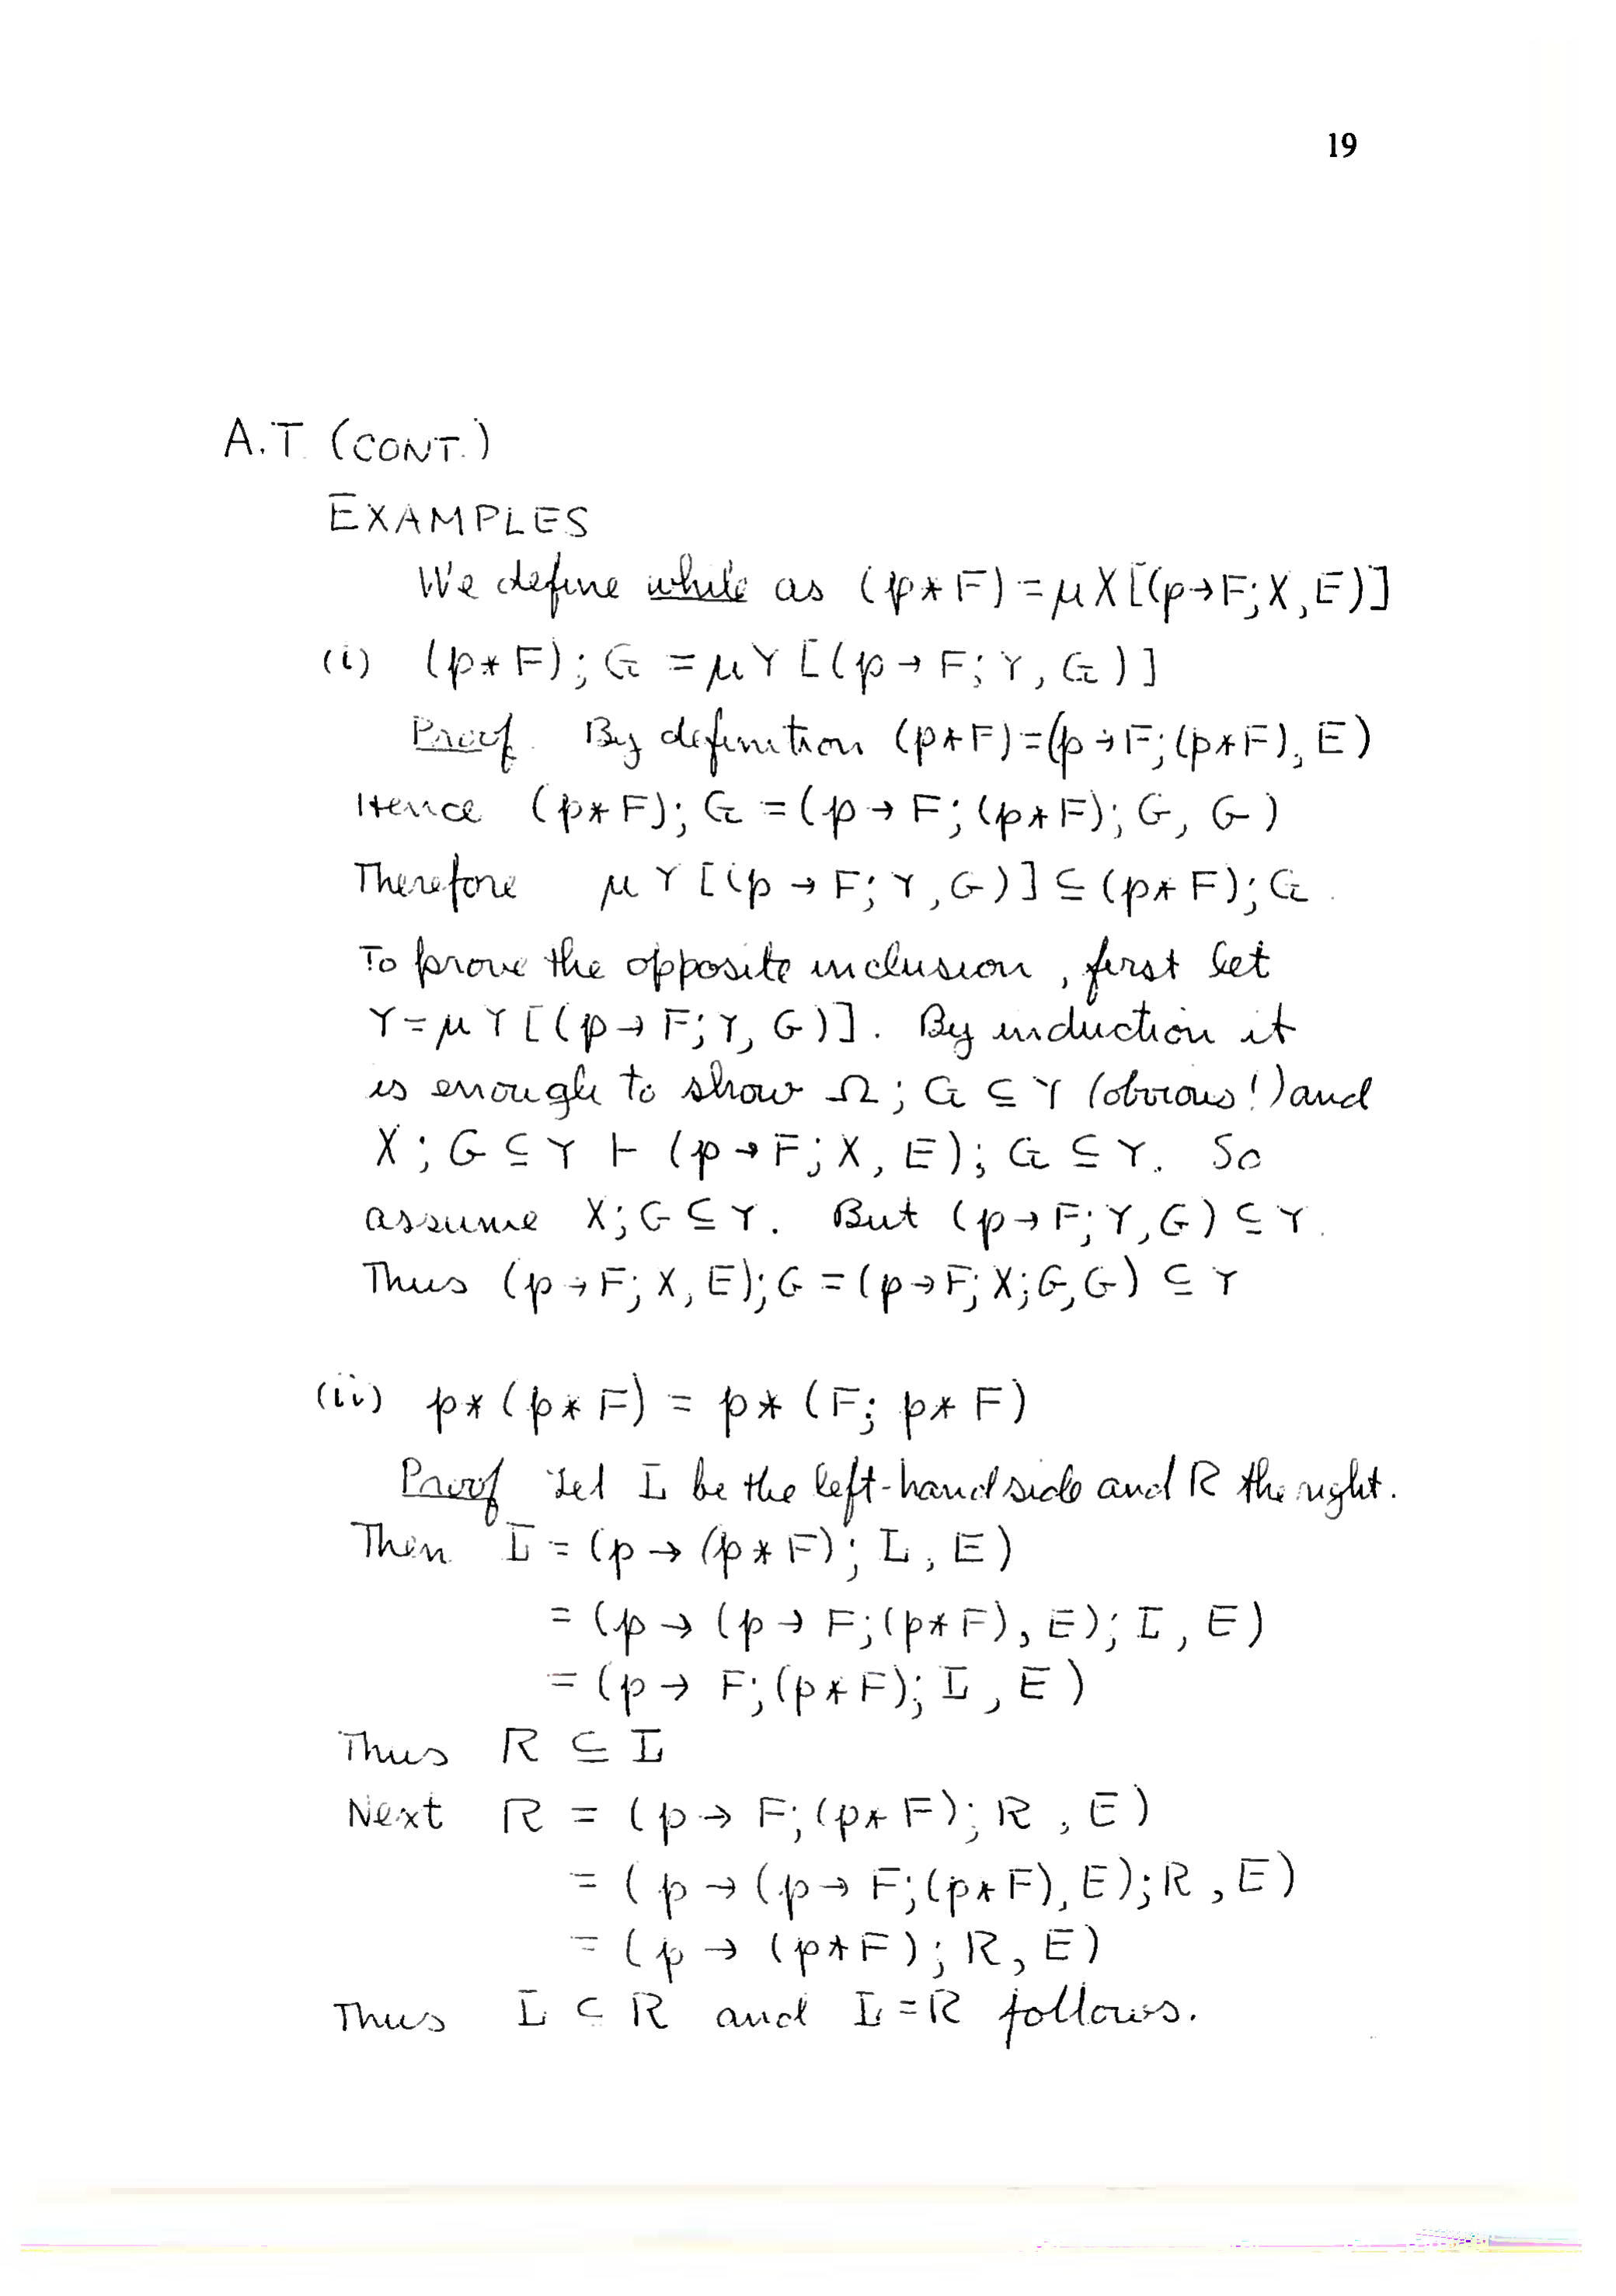 19
A.T. (CONT.)
EXAMPLES
We define while as (p * F) = μX[(p→F;X,E)]
(i) (p* F); G = μY[(p → F; Y, G)]
Proof. By definition (p*F)=(p→F;(p*F),E)
Hence (p* F); G = (p → F; (p*F); G, G)
Therefore μY[(p → F; Y, G)] ⊆ (p* F); G.
To prove the opposite inclusion, first let
Y = μY[(p→ F; Y, G)]. By induction it
is enough to show Ω; G ⊆ Y (obvious!) and
X; G ⊆ Y ⊢ (p → F; X, E); G ⊆ Y. So
assume X; G ⊆ Y. But (p→F; Y, G) ⊆ Y.
Thus (p → F; X, E); G = (p→F; X; G, G) ⊆ Y
(ii) p* (p* F) = p* (F; p* F)
Proof Let L be the left-hand side and R the right.
Then L = (p → (p * F); L, E)
= (p → (p → F; (p* F), E); L, E)
= (p → F; (p * F); L, E)
Thus R ⊆ L
Next R = (p → F; (p* F); R, E)
= (p → (p → F; (p* F), E); R, E)
= (p → (p*F); R, E)
Thus L ⊂ R and L = R follows.